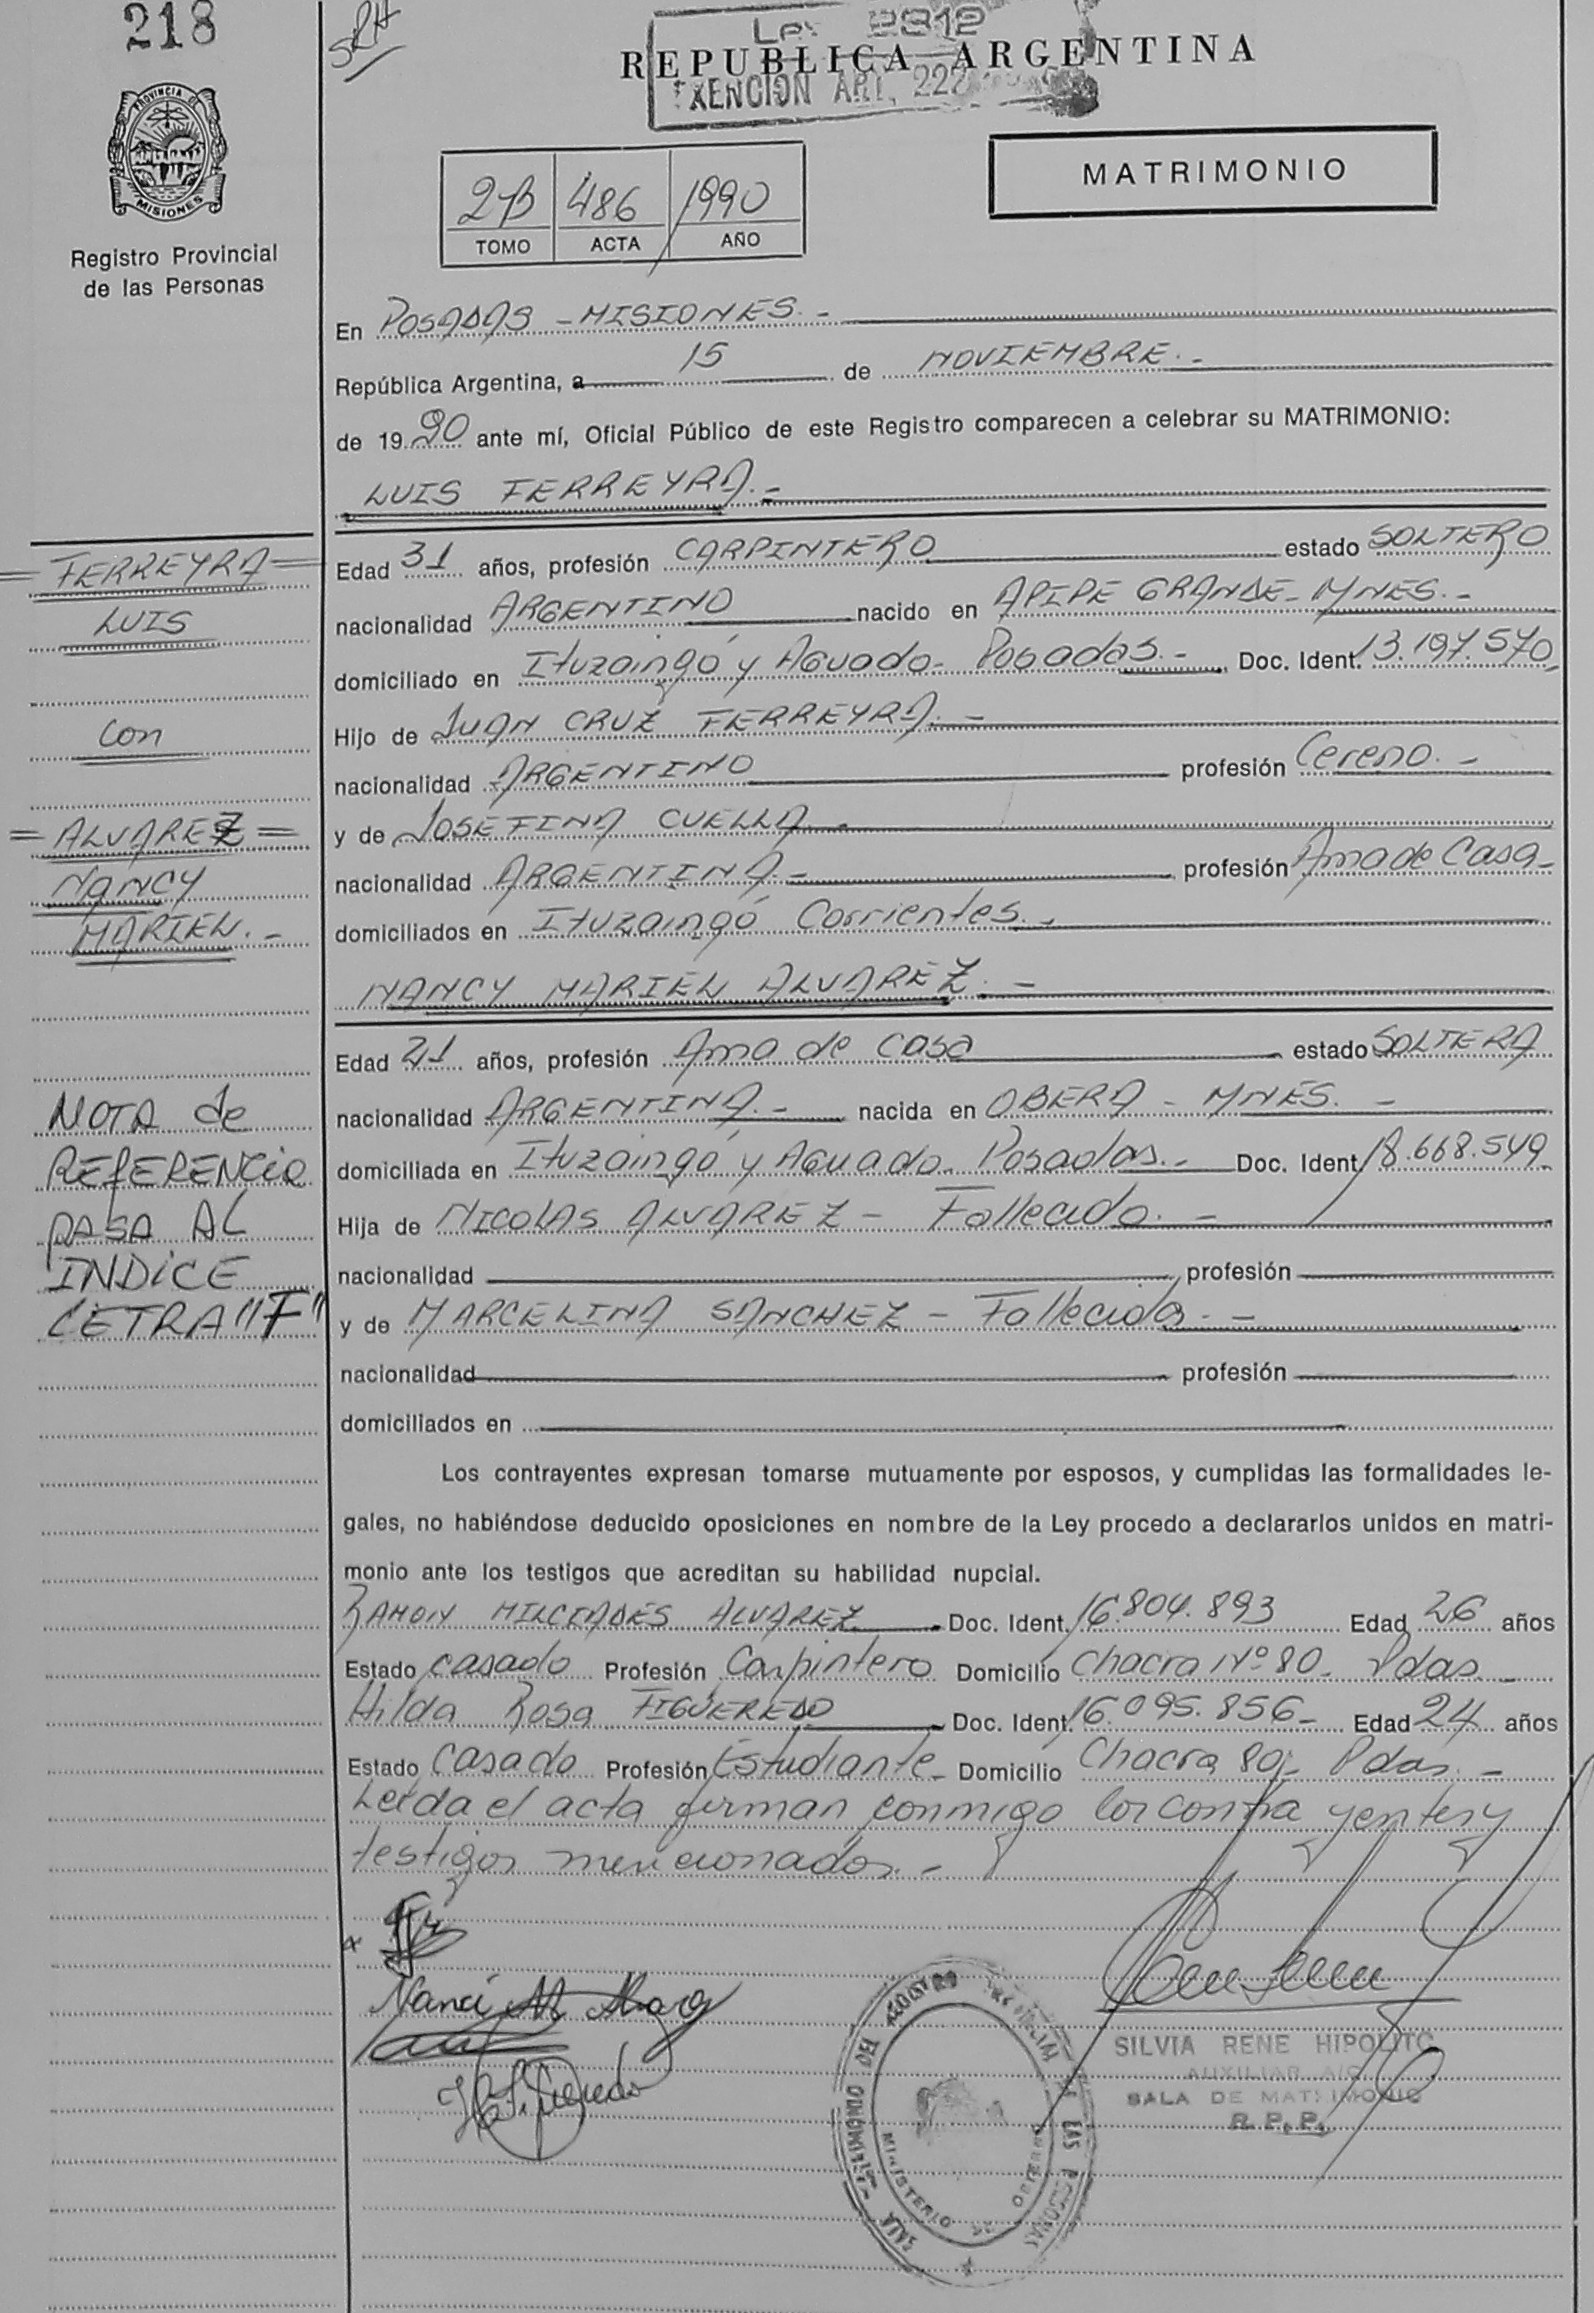 218
SRH
Ley 2312
REPUBLICA ARGENTINA
EXENCION ART. 222
PROVINCIA DE
MISIONES
Registro Provincial
de las Personas
2B 486 1990
TOMO ACTA AÑO
MATRIMONIO
En POSADAS - MISIONES. -
República Argentina, a 15 de NOVIEMBRE. -
de 19 90 ante mí, Oficial Público de este Registro comparecen a celebrar su MATRIMONIO:
LUIS FERREYRA. -
Edad 31 años, profesión CARPINTERO estado SOLTERO
nacionalidad ARGENTINO nacido en APIPE GRANDE - MNES. -
domiciliado en Ituzaingó y Aguado - Posadas. - Doc. Ident. 13.197.570
Hijo de JUAN CRUZ FERREYRA. -
nacionalidad ARGENTINO profesión Cereno. -
y de JOSEFINA CUELLA -
nacionalidad ARGENTINA. - profesión Ama de Casa -
domiciliados en Ituzaingó Corrientes. -
NANCY MARIEL ALVAREZ. -
Edad 21 años, profesión Ama de casa estado SOLTERA
nacionalidad ARGENTINA. - nacida en OBERA - MNES. -
domiciliada en Ituzaingó y Aguado - Posadas. - Doc. Ident. 18.668.549
Hija de NICOLAS ALVAREZ - Fallecido. -
nacionalidad profesión
y de MARCELINA SANCHEZ - Fallecida. -
nacionalidad profesión
domiciliados en
Los contrayentes expresan tomarse mutuamente por esposos, y cumplidas las formalidades le-
gales, no habiéndose deducido oposiciones en nombre de la Ley procedo a declararlos unidos en matri-
monio ante los testigos que acreditan su habilidad nupcial.
RAMON MILCIADES ALVAREZ Doc. Ident. 16.804.893 Edad 26 años
Estado casado Profesión Carpintero Domicilio Chacra Nº 80 - Pdas. -
Hilda Rosa FIGUEREDO Doc. Ident. 16.095.856 - Edad 24 años
Estado Casado Profesión Estudiante - Domicilio Chacra 80 - Pdas. -
Leída el acta firman conmigo los contrayentes y
testigos mencionados. -
= FERREYRA =
LUIS
con
= ALVAREZ =
NANCY
MARIEL. -
NOTA de
REFERENCIA
PASA AL
INDICE
LETRA "F"
x
Nanci M. Alvarez
H R Figueredo
SALA MATRIMONIO DEL REGISTRO PROVINCIAL DE LAS PERSONAS
MINISTERIO DE GOBIERNO
SILVIA RENE HIPOLITO
AUXILIAR A/C
SALA DE MATRIMONIO
R. P. P.